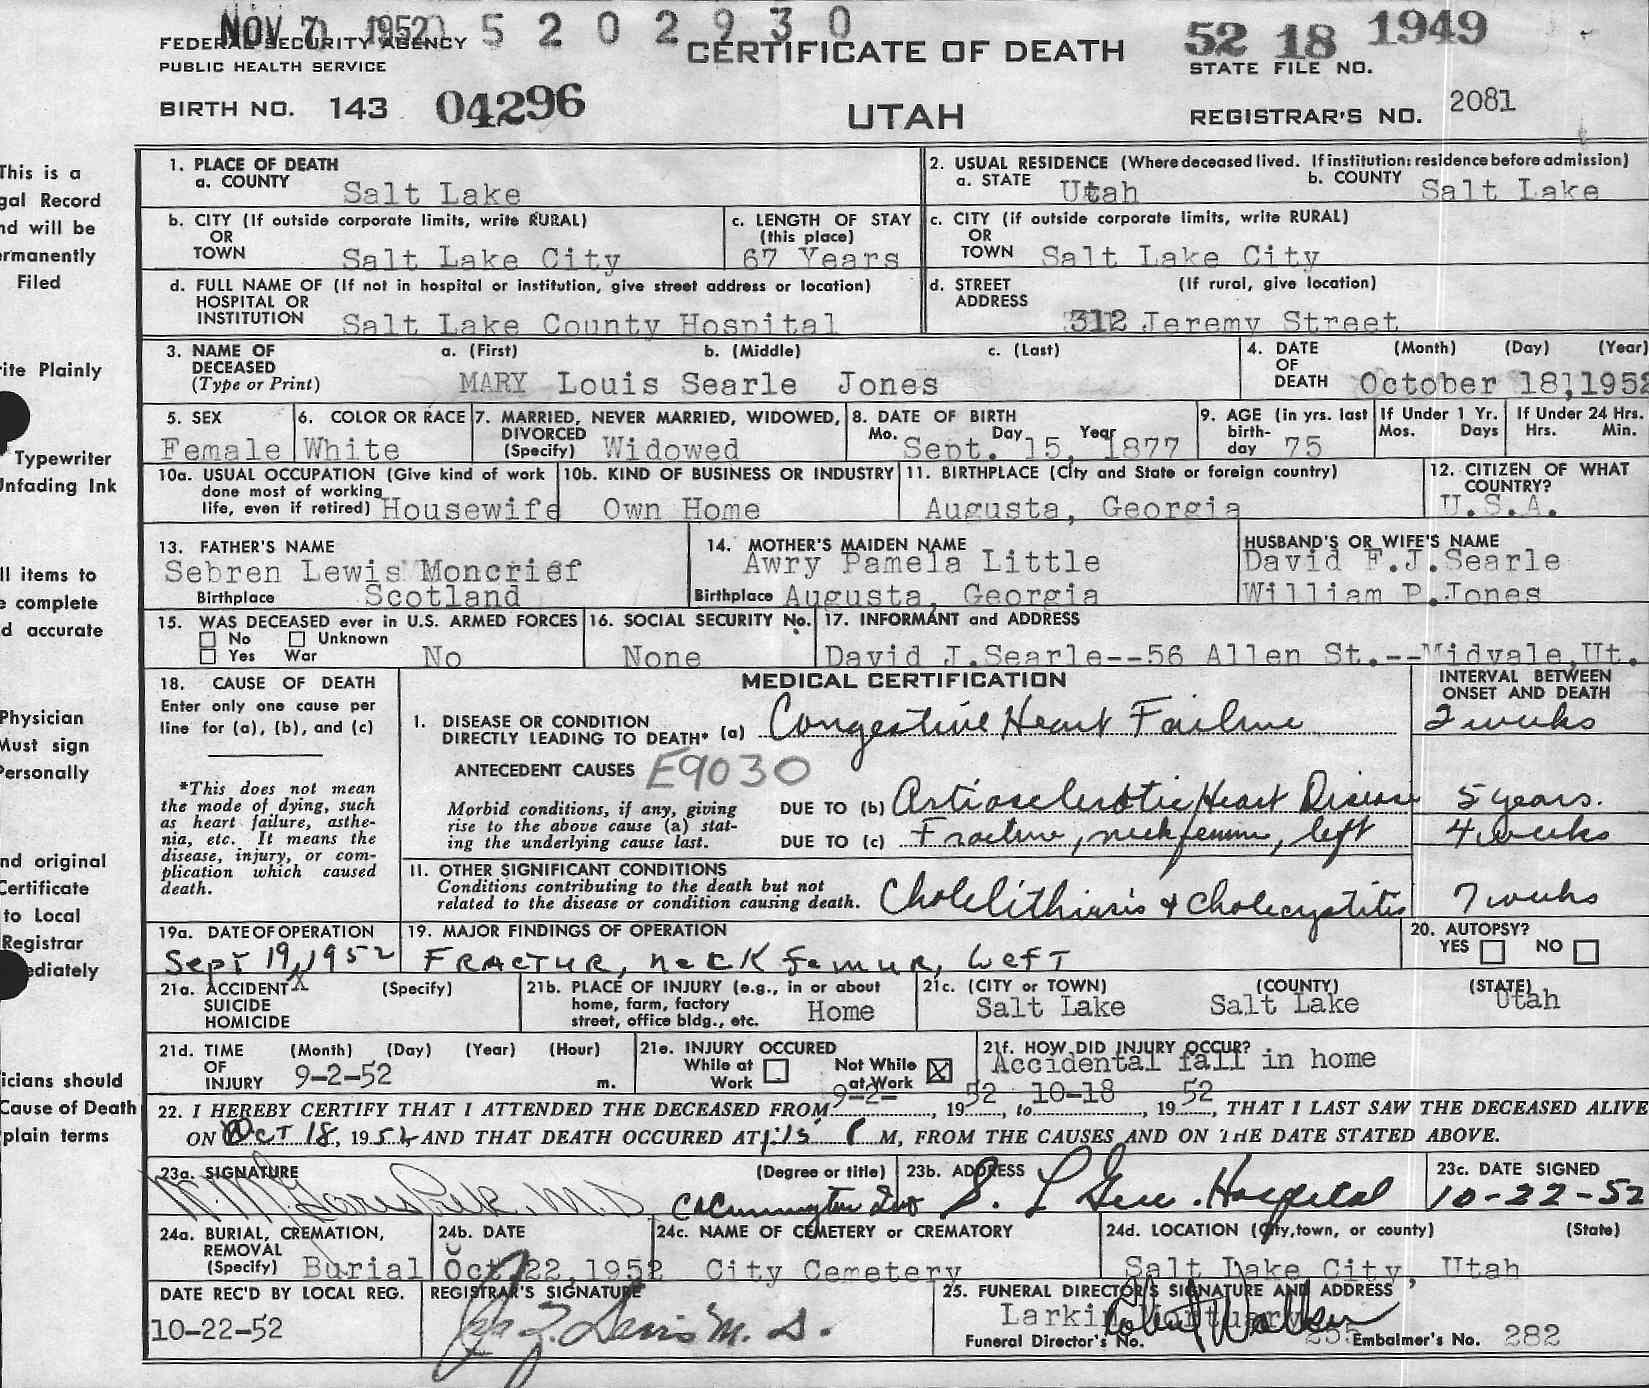 NOV 7 1952 5 2 0 2 9 3 0
FEDERAL SECURITY AGENCY
PUBLIC HEALTH SERVICE
CERTIFICATE OF DEATH
52 18 1949
STATE FILE NO.
BIRTH NO. 143 04296
UTAH
REGISTRAR'S NO. 2081
This is a
gal Record
nd will be
ermanently
Filed
rite Plainly
Typewriter
Unfading Ink
ll items to
e complete
d accurate
Physician
Must sign
Personally
nd original
Certificate
to Local
Registrar
ediately
icians should
Cause of Death
plain terms
1. PLACE OF DEATH
a. COUNTY Salt Lake
2. USUAL RESIDENCE (Where deceased lived. If institution: residence before admission)
a. STATE Utah b. COUNTY Salt Lake
b. CITY (If outside corporate limits, write RURAL)
OR
TOWN Salt Lake City
c. LENGTH OF STAY
(this place)
67 Years
c. CITY (if outside corporate limits, write RURAL)
OR
TOWN Salt Lake City
d. FULL NAME OF (If not in hospital or institution, give street address or location)
HOSPITAL OR
INSTITUTION Salt Lake County Hospital
d. STREET (If rural, give location)
ADDRESS
312 Jeremy Street
3. NAME OF DECEASED a. (First) b. (Middle) c. (Last)
(Type or Print) MARY Louis Searle Jones
4. DATE (Month) (Day) (Year)
OF
DEATH October 18, 1952
5. SEX
Female
6. COLOR OR RACE
White
7. MARRIED, NEVER MARRIED, WIDOWED,
DIVORCED
(Specify) Widowed
8. DATE OF BIRTH
Mo. Day Year
Sept. 15, 1877
9. AGE (in yrs. last
birth-
day 75
If Under 1 Yr.
Mos. Days
If Under 24 Hrs.
Hrs. Min.
10a. USUAL OCCUPATION (Give kind of work
done most of working
life, even if retired) Housewife
10b. KIND OF BUSINESS OR INDUSTRY
Own Home
11. BIRTHPLACE (City and State or foreign country)
Augusta, Georgia
12. CITIZEN OF WHAT
COUNTRY?
U.S.A.
13. FATHER'S NAME
Sebren Lewis Moncrief
Birthplace Scotland
14. MOTHER'S MAIDEN NAME
Awry Pamela Little
Birthplace Augusta, Georgia
HUSBAND'S OR WIFE'S NAME
David F.J.Searle
William P.Jones
15. WAS DECEASED ever in U.S. ARMED FORCES
No Unknown
Yes War No
16. SOCIAL SECURITY No.
None
17. INFORMANT and ADDRESS
David J.Searle--56 Allen St.--Midvale,Ut.
18. CAUSE OF DEATH
Enter only one cause per
line for (a), (b), and (c)
*This does not mean
the mode of dying, such
as heart failure, asthe-
nia, etc. It means the
disease, injury, or com-
plication which caused
death.
MEDICAL CERTIFICATION
INTERVAL BETWEEN
ONSET AND DEATH
I. DISEASE OR CONDITION
DIRECTLY LEADING TO DEATH* (a) Congestive Heart Failure 2 weeks
ANTECEDENT CAUSES E9030
Morbid conditions, if any, giving
rise to the above cause (a) stat-
ing the underlying cause last.
DUE TO (b) Artiosclerotic Heart Disease 5 years.
DUE TO (c) Fracture, neck femur, left 4 weeks
II. OTHER SIGNIFICANT CONDITIONS
Conditions contributing to the death but not
related to the disease or condition causing death.
Cholelithiasis & Cholecystitis 7 weeks
19a. DATE OF OPERATION
Sept 19, 1952
19. MAJOR FINDINGS OF OPERATION
FRACTUR, NECK FEMUR, LEFT
20. AUTOPSY?
YES NO
21a. ACCIDENT X (Specify)
SUICIDE
HOMICIDE
21b. PLACE OF INJURY (e.g., in or about
home, farm, factory
street, office bldg., etc. Home
21c. (CITY OR TOWN) (COUNTY) (STATE)
Salt Lake Salt Lake Utah
21d. TIME (Month) (Day) (Year) (Hour)
OF
INJURY 9-2-52 m.
21e. INJURY OCCURED
While at Work Not While at Work X
21f. HOW DID INJURY OCCUR?
Accidental fall in home
22. I HEREBY CERTIFY THAT I ATTENDED THE DECEASED FROM 9-2-, 1952, to 10-18, 1952, THAT I LAST SAW THE DECEASED ALIVE
ON Oct 18, 1952 AND THAT DEATH OCCURED AT 1:15 P M, FROM THE CAUSES AND ON THE DATE STATED ABOVE.
23a. SIGNATURE (Degree or title)
M.D.
23b. ADDRESS
S. L Gen. Hospital
23c. DATE SIGNED
10-22-52
24a. BURIAL, CREMATION,
REMOVAL
(Specify) Burial
24b. DATE
Oct 22, 1952
24c. NAME OF CEMETERY or CREMATORY
City Cemetery
24d. LOCATION (City, town, or county) (State)
Salt Lake City, Utah
DATE REC'D BY LOCAL REG.
10-22-52
REGISTRAR'S SIGNATURE
M. D.
25. FUNERAL DIRECTOR'S SIGNATURE AND ADDRESS
Larkin Mortuary
Funeral Director's No. Embalmer's No. 282